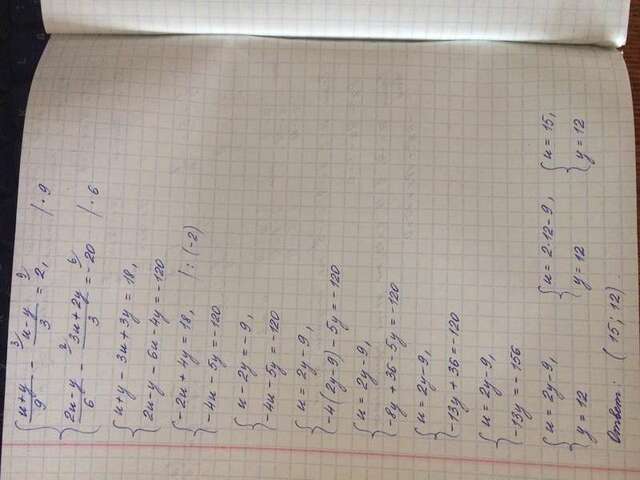 { (u+y)/9 - (u-y)/3 = 2, | · 9
{ (2u-y)/6 - (3u+2y)/3 = -20 | · 6
{ u+y - 3u + 3y = 18,
{ 2u - y - 6u - 4y = -120
{ -2u + 4y = 18, | : (-2)
{ -4u - 5y = -120
{ u - 2y = -9,
{ -4u - 5y = -120
{ u = 2y - 9,
{ -4(2y-9) - 5y = -120
{ u = 2y - 9,
{ -8y + 36 - 5y = -120
{ u = 2y - 9,
{ -13y + 36 = -120
{ u = 2y - 9,
{ -13y = -156
{ u = 2y - 9, { u = 2·12 - 9, { u = 15,
{ y = 12 { y = 12 { y = 12
Ответ: (15; 12).